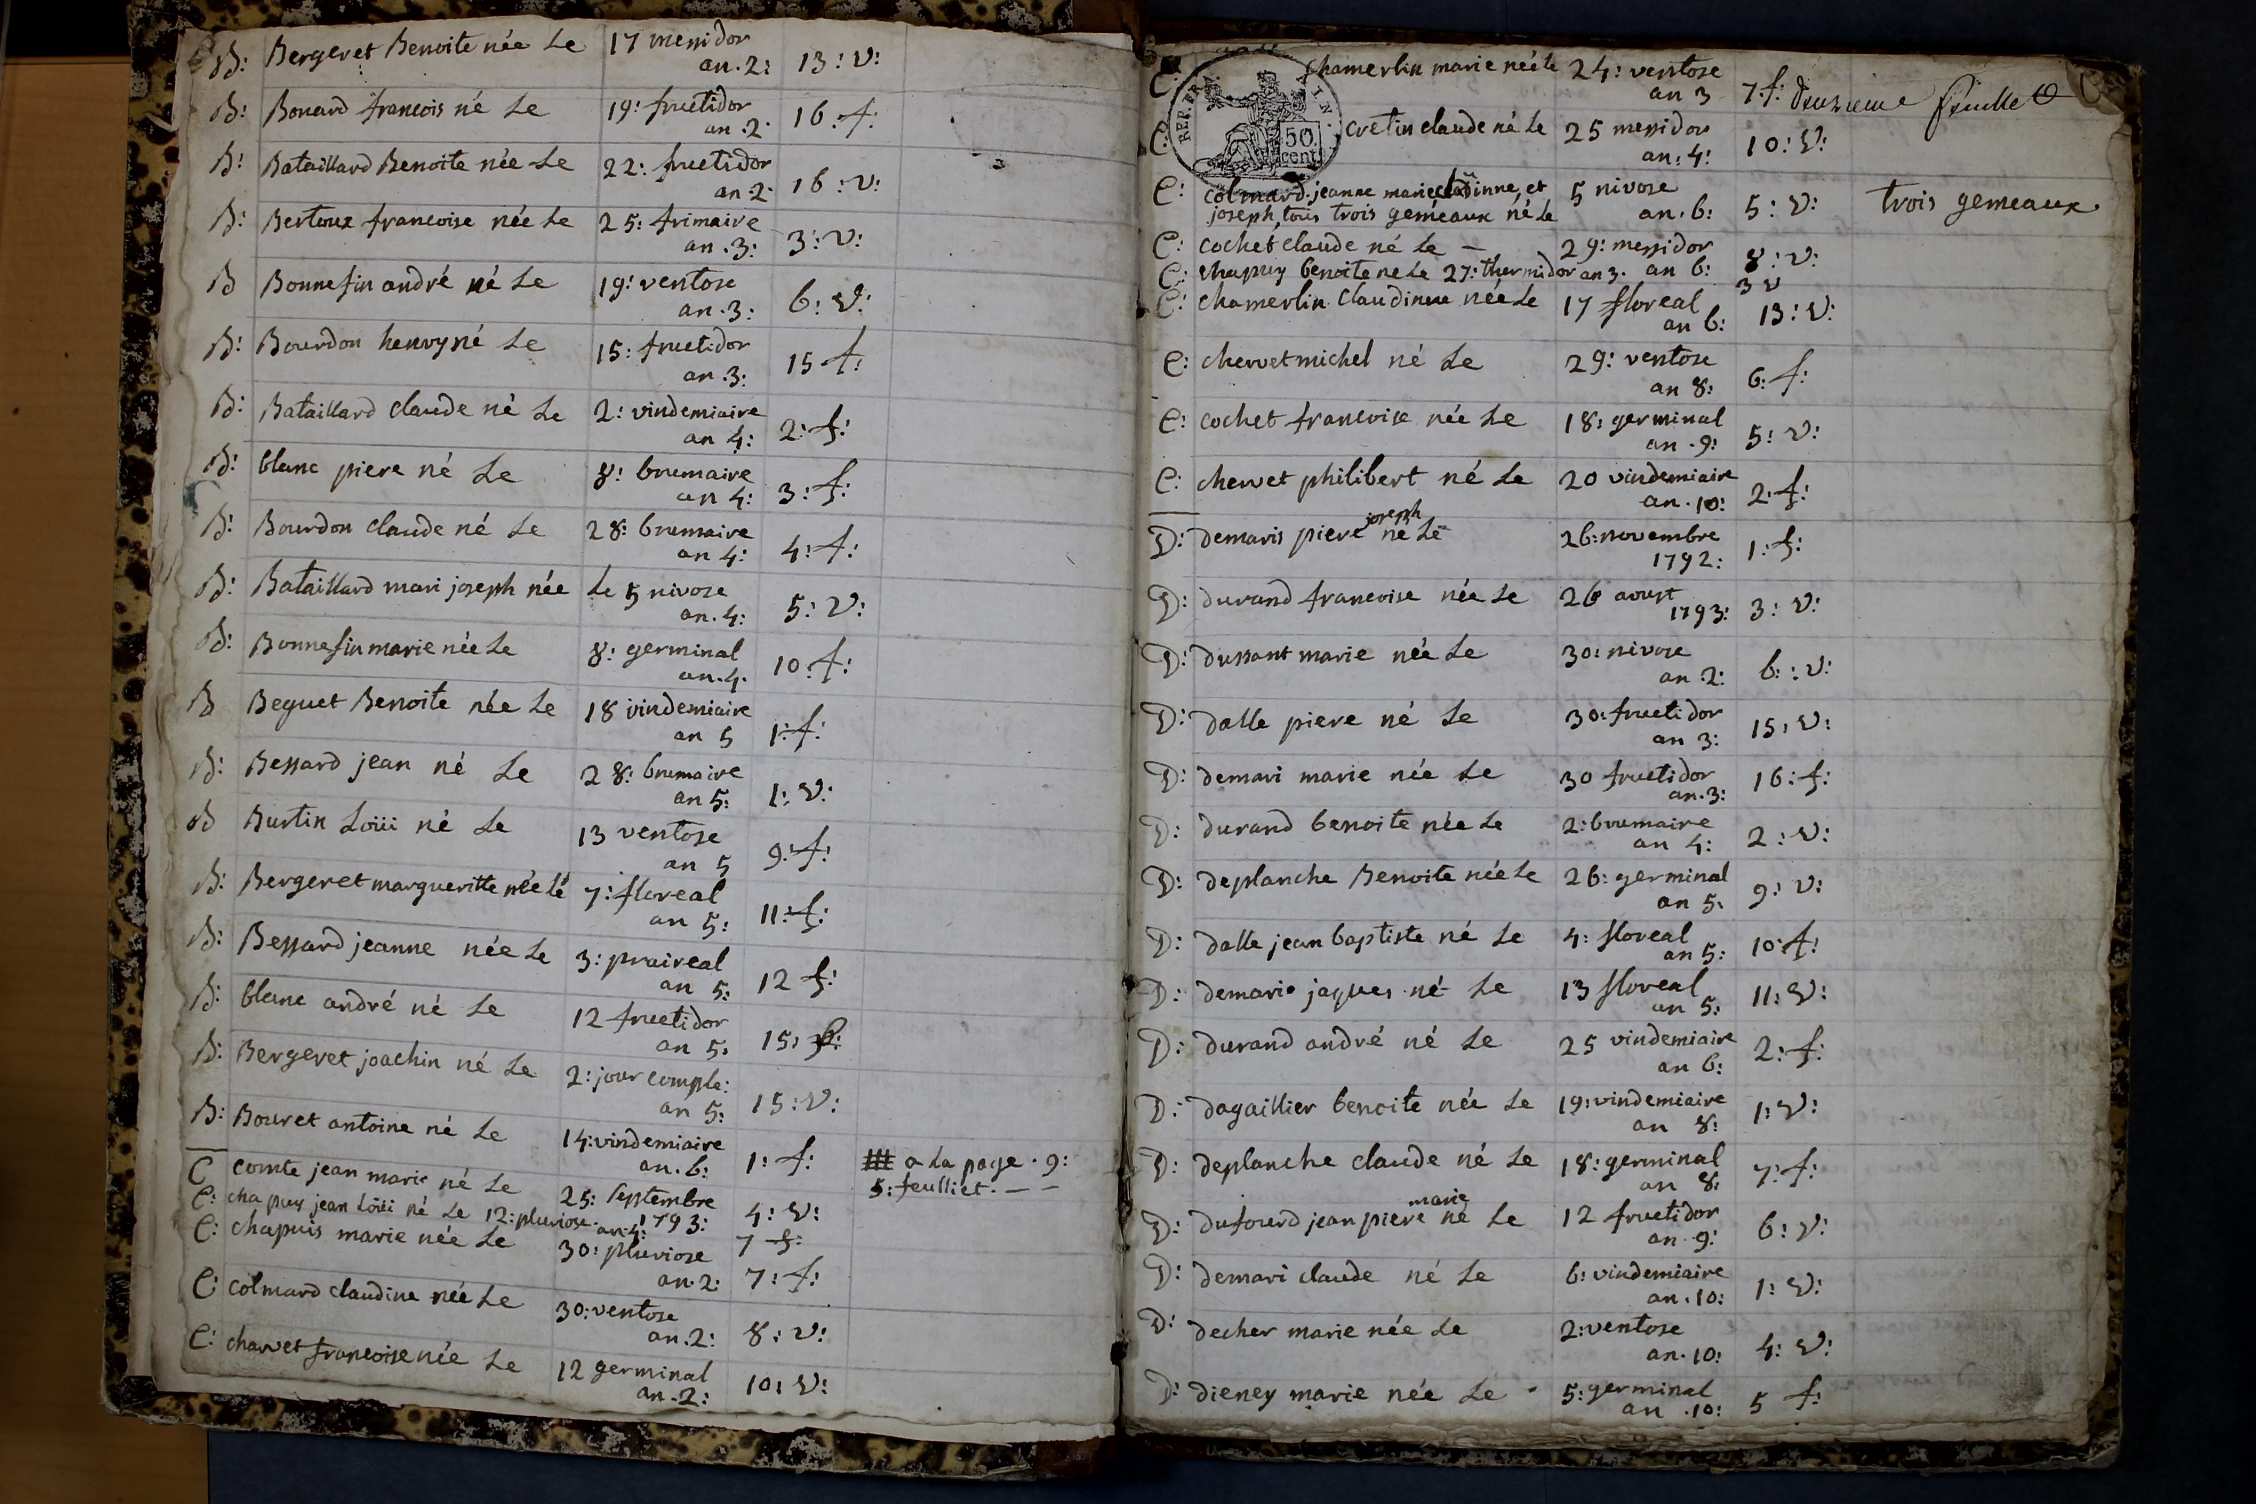 B: Bergeret Benoite née Le 17 messidor
an. 2: 13: v:
B: Bonard francois né Le 19: fructidor
an. 2. 16. f:
B: Bataillard Benoite née Le 22: fructidor
an 2. 16: v:
B: Bertoux francoise née Le 25: frimaire
an. 3: 3: v:
B Bonnefin andré né Le 19: ventose
an. 3: 6: v:
B: Bourdon henry né Le 15: fructidor
an. 3: 15 f:
B: Bataillard claude né Le 2: vindemiaire
an 4: 2: f:
B: blanc piere né Le 8: brumaire
an 4: 3: f:
B: Bourdon claude né Le 28: brumaire
an 4: 4: f:
B: Bataillard mari joseph née Le 5 nivose
an. 4: 5: v:
B: Bonnefin marie née Le 8: germinal
an. 4. 10. f:
B Beguet Benoite née Le 18 vindemiaire
an 5 1: f:
B: Bessard jean né Le 28: brumaire
an 5: 1: v:
B Burtin Loüi né Le 13 ventose
an 5 9: f:
B: Bergeret margueritte née Lé 7: floreal
an 5: 11: f:
B: Bessard jeanne née Le 3: praireal
an 5: 12 f:
B: blanc andré né Le 12 fructidor
an 5: 15:
B: Bergeret joachin né Le 2: jour comple:
an 5: 15: v:
B: Bouret antoine né Le 14: vindemiaire
an. 6: 1: f: a La page. 9:
5: feulliet. — —
C comte jean marie né Le 25: septembre
1793: 4: v:
C: chapuy jean Loüi né Le 12: pluviose. an. 4: 7 f:
C: chapuis marie née Le 30: pluviose
an. 2: 7: f:
C: colmard claudine née Le 30: ventose
an. 2: 8: v:
C: charvet francoise née Le 12 germinal
an. 2: 10: v:
REP. FRA
IN.
50
cent.
C: chamerlin marie née le 24: ventose
an 3 7. f: deuxieme feuille
C: cretin claude né Le 25 messidor
an: 4: 10: v:
C: colmard: jeanne marie claudinne, et 5 nivose
joseph, tous trois gemeaux né Le an. 6: 5: v: trois gemeaux.
C: cochet claude né Le — 29: messidor
an 6: 8: v:
C: chapuy benoite ne Le 27: thermidor an 3. 3 v
C: chamerlin claudinne née Le 17 floreal
an 6: 13: v:
C: chervet michel né Le 29: ventose
an 8: 6: f:
C: cochet francoise née Le 18: germinal
an. 9: 5: v:
C: chervet philibert né Le 20 vindemiaire
an. 10: 2: f:
joseph
D: demaris piere né Le 26: novembre
1792: 1: f:
D: durand francoise née Le 26 aoust
1793: 3: v:
D: dussant marie née Le 30: nivose
an. 2: 6: v:
D: dalle piere né Le 30: fructidor
an 3: 15: v:
D: demari marie née Le 30 fructidor
an. 3: 16: f:
D: durand benoite née Le 2: brumaire
an 4: 2: v:
D: deplanche Benoite née Le 26: germinal
an 5. 9: v:
D: dalle jean baptiste né Le 4: floreal
an 5: 10. f:
D: demari jaques né Le 13 floreal
an 5: 11: v:
D: durand andré né Le 25 vindemiaire
an 6: 2: f:
D: dagaillier benoite née Le 19: vindemiaire
an 8: 1: v:
D: deplanche claude né Le 18: germinal
an 8: 7: f:
marie
D: dufourd jean piere né Le 12 fructidor
an. 9: 6: v:
D: demari claude né Le 6: vindemiaire
an. 10: 1: v:
D: decher marie née Le 2: ventose
an. 10: 4: v:
D: dieney marie née Le 5: germinal
an. 10: 5 f: